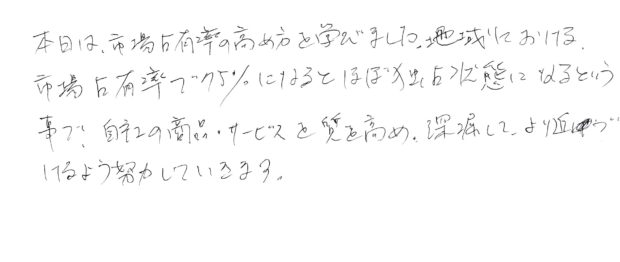 本日は、市場占有率の高め方を学びました。地域における、
市場占有率で75%になるとほぼ独占状態になるという
事で、自社の商品・サービスを質を高め、深堀して、より近づ
けるよう努力していきます。